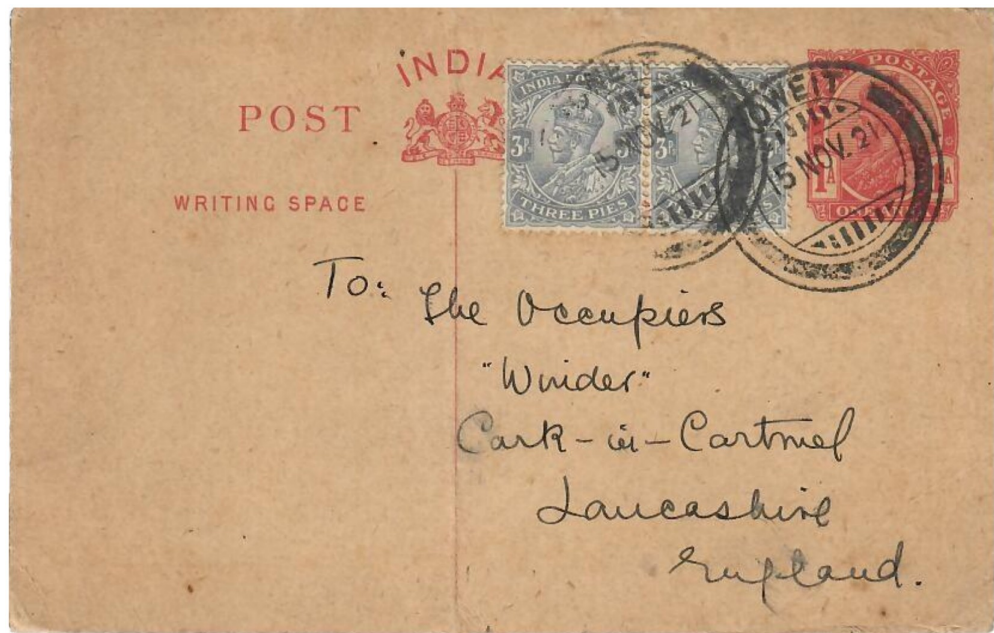 INDIA
POST
WRITING SPACE
INDIA POSTAGE
3P
THREE PIES
3P
POSTAGE
1A
ONE ANNA
KOWEIT
15 NOV. 21
OWEIT
15 NOV. 21
To: The Occupiers
"Winder"
Cark-in-Cartmel
Lancashire
England.